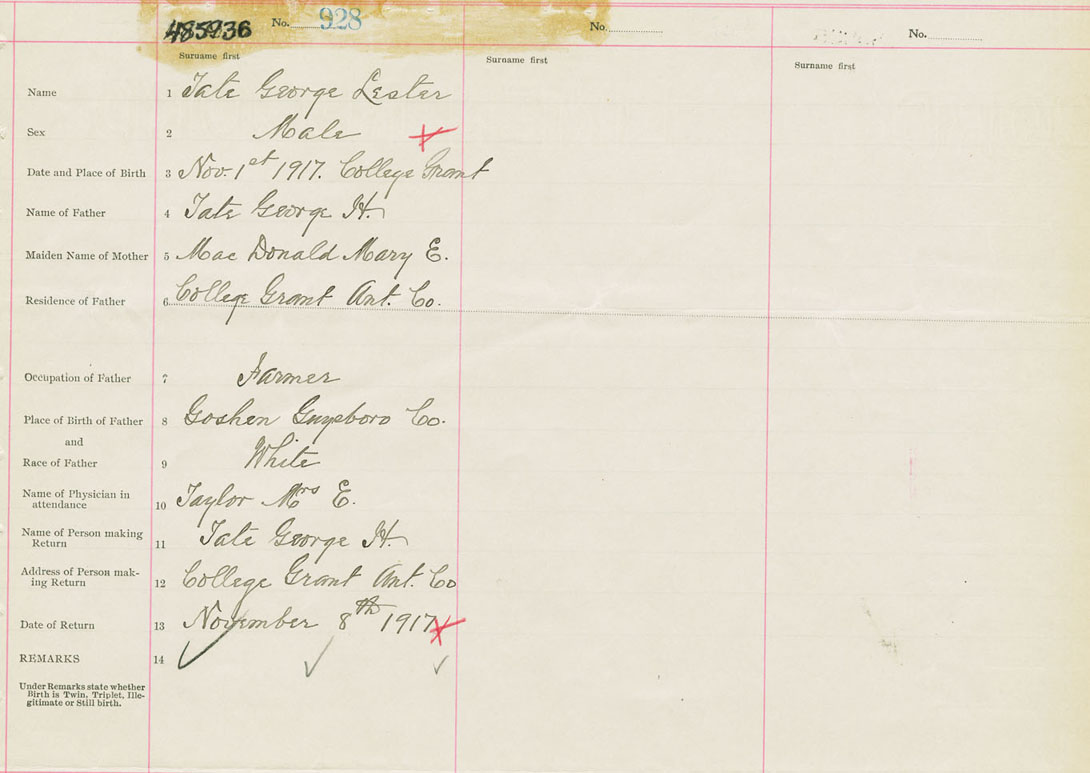 485936 No. 928 No. No.
Surname first Surname first Surname first
Name 1 Tate George Lester
Sex 2 Male
Date and Place of Birth 3 Nov. 1st 1917. College Grant
Name of Father 4 Tate George H.
Maiden Name of Mother 5 Mac Donald Mary E.
Residence of Father 6 College Grant Ant. Co.
Occupation of Father 7 Farmer
Place of Birth of Father 8 Goshen Guysboro Co.
and
Race of Father 9 White
Name of Physician in
attendance 10 Taylor Mrs E.
Name of Person making
Return 11 Tate George H.
Address of Person mak-
ing Return 12 College Grant Ant. Co
Date of Return 13 November 8th 1917
REMARKS 14
Under Remarks state whether
Birth is Twin, Triplet, Ille-
gitimate or Still birth.